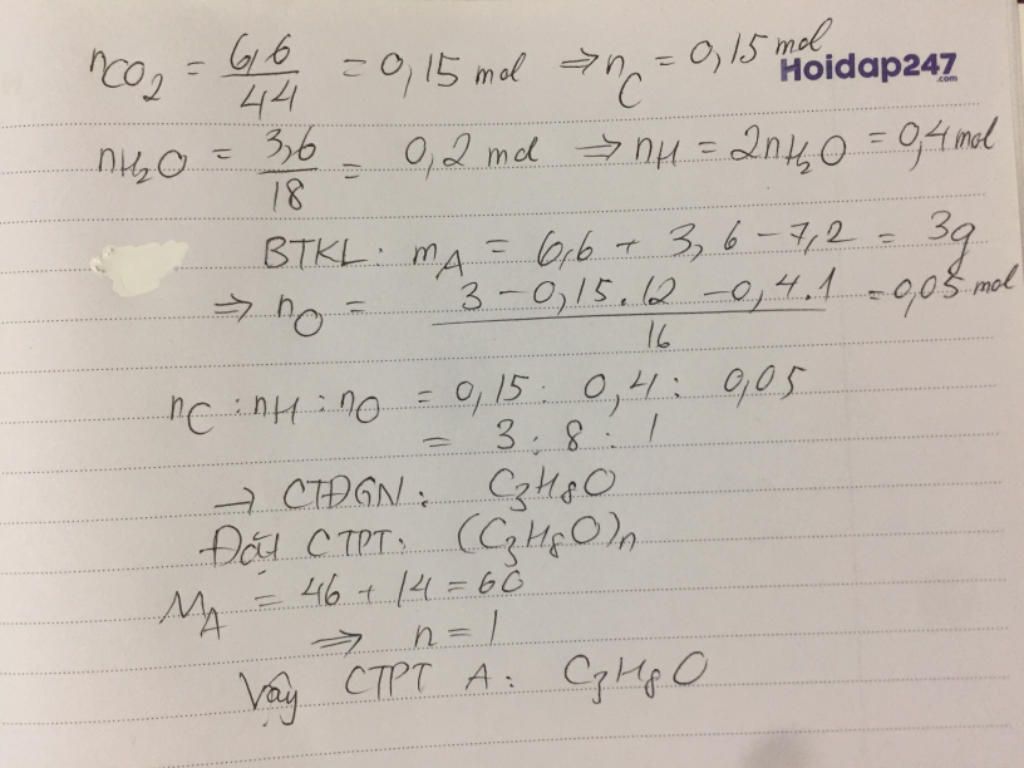 nCO₂ = 6,6/44 = 0,15 mol ⇒ nC = 0,15 mol
Hoidap247.com
nH₂O = 3,6/18 = 0,2 mol ⇒ nH = 2nH₂O = 0,4 mol
BTKL: mA = 6,6 + 3,6 - 7,2 = 3g
⇒ nO = (3 - 0,15.12 - 0,4.1)/16 = 0,05 mol
nC : nH : nO = 0,15 : 0,4 : 0,05
= 3 : 8 : 1
→ CTĐGN: C₃H₈O
Đặt CTPT: (C₃H₈O)n
MA = 46 + 14 = 60
⇒ n = 1
Vậy CTPT A: C₃H₈O